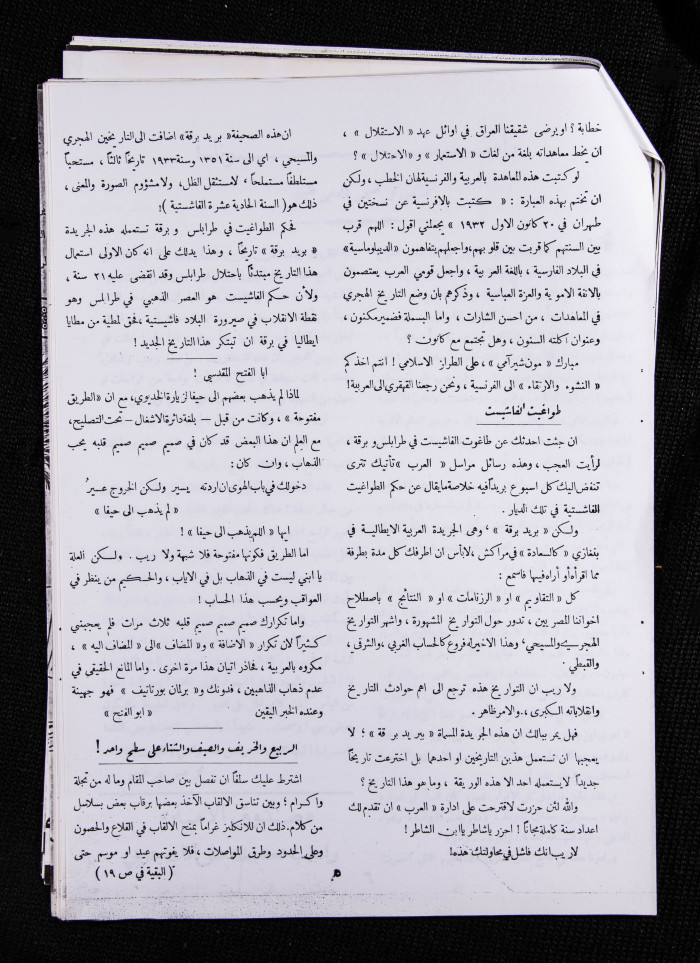 خطابة ؟ او يرضى شقيقنا العراق في اوائل عهد « الاستقلال » ،
ان يخط معاهداته بلغة من لغات « الاستعمار » و « الاحتلال » ؟
لو كتبت هذه المعاهدة بالعربية والفرنسية لهان الخطب ، ولكن
ان تختم بهذه العبارة : « كتبت بالافرنسية عن نسختين في
طهران في ٢٠ كانون الاول ١٩٣٢ » يجعلني اقول : اللهم قرب
بين السنتهم كما قربت بين قلوبهم، واجعلهم يتفاهمون «الديبلوماسية»
في البلاد الفارسية ، باللغة العربية ، واجعل قومي العرب يعتصمون
بالانفة الاموية والعزة العباسية ، وذكرهم بان وضع التاريخ الهجري
في المعاهدات ، من احسن الشارات ، واما البسملة فضمير مكنون ،
وعنوان اكلته السنون ، وهل تجتمع مع كانون ؟
مبارك « مون شير آمي » ، على الطراز الاسلامي ! انتم اخذكم
« النشوء والارتقاء » الى الفرنسية ، ونحن رجعنا القهقرى الى العربية !
طواغيت الفاشيست
ان جئت احدثك عن طاغوت الفاشيست في طرابلس و برقة ،
لرأيت العجب ، وهذه رسائل مراسل « العرب » تأتيك تترى
تنفض اليك كل اسبوع بريداً فيه خلاصة ما يقال عن حكم الطواغيت
الفاشستية في تلك الديار .
ولكن « بريد برقة » ، وهي الجريدة العربية الايطالية في
بنغازي « كالسعادة » في مراكش ، لا بأس ان اطرفك كل مدة بطرفة
مما اقرأه أو أراه فيها فاسمع :
كل « التقاويم » او « الرزنامات » او « النتائج » باصطلاح
اخواننا المصريين ، تدور حول التواريخ المشهورة ، واشهر التواريخ
الهجري والمسيحي، وهذا الاخير له فروع كالحساب الغربي ، والشرقي،
والقبطي .
ولا ريب ان التواريخ هذه ترجع الى اهم حوادث التاريخ
وانقلاباته الكبرى ، والامر ظاهر .
فهل يمر ببالك ان هذه الجريدة المسماة « ببريد برقة » ؛ لا
يعجبها ان تستعمل هذين التاريخين او احدهما بل اخترعت تاريخاً
جديداً لا يستعمله احد الا هذه الوريقة ، وما هو هذا التاريخ ؟
والله لئن حزرت لاقترحت على ادارة « العرب » ان تقدم لك
اعداد سنة كاملة مجاناً ! احزر يا شاطر يا ابن الشاطر !
لا ريب انك فاشل في محاولتك هذه!
ان هذه الصحيفة « بريد برقة » اضافت الى التاريخين الهجري
والمسيحي ، اي الى سنة ١٣٥١ وسنة ١٩٣٣ تاريخاً ثالثاً ، مستحباً
مستلطفاً مستملحاً ، لا مستثقل الظل ، ولا مشؤوم الصورة والمعنى ،
ذلك هو ( السنة الحادية عشرة الفاشستية ) !
فحكم الطواغيت في طرابلس و برقة تستعمله هذه الجريدة
« بريد برقة » تاريخاً ، وهذا يدلك على انه كان الاولى استعمال
هذا التاريخ مبتدئاً باحتلال طرابلس وقد انقضى عليه ٢١ سنة ،
ولأن حكم الفاشيست هو العصر الذهبي في طرابلس وهو
نقطة الانقلاب في صيرورة البلاد فاشيستية ، فحق لمطية من مطايا
ايطاليا في برقة ان تبتكر هذا التاريخ الجديد !
ابا الفتح المقدسي !
لماذا لم يذهب بعضهم الى حيفا لزيارة الخديوي، مع ان « الطريق
مفتوحة » ، وكانت من قبل — بلغة دائرة الاشغال — تحت التصليح،
مع العلم ان هذا البعض قد كان في صميم صميم صميم قلبه يحب
الذهاب ، وان كان :
دخولك في باب الهوى ان اردته يسير ولكن الخروج عسيرُ
« لم يذهب الى حيفا »
ايها « اللم يذهب الى حيفا » !
اما الطريق فكونها مفتوحة فلا شبهة ولا ريب . ولكن العلة
يا ابني ليست في الذهاب بل في الاياب ، والحكيم من ينظر في
العواقب ويحسب هذا الحساب !
واما تكرارك صميم صميم قلبه ثلاث مرات فلم يعجبني
كثيراً لان تكرار « الاضافة » و« المضاف » الى « المضاف اليه » ،
مكروه بالعربية ، فحاذر اتيان هذا مرة اخرى . واما المانع الحقيقي في
عدم ذهاب الذاهبين ، فدونك و« برلمان بورتاتيف » فهو جهينة
وعنده الخبر اليقين « ابو الفتح »
الربيع والخريف والصيف والشتاء على سطح واحد !
اشترط عليك سلفاً ان تفصل بين صاحب المقام وما له من تجلة
واكرام ؛ وبين تناسق الالقاب الآخذ بعضها برقاب بعض بسلاسل
من كلام. ذلك ان للانكليز غراماً بمنح الالقاب في القلاع والحصون
وعلى الحدود وطرق المواصلات ، فلا يفوتهم عيد او موسم حتى
( البقية في ص ١٩ )
٥